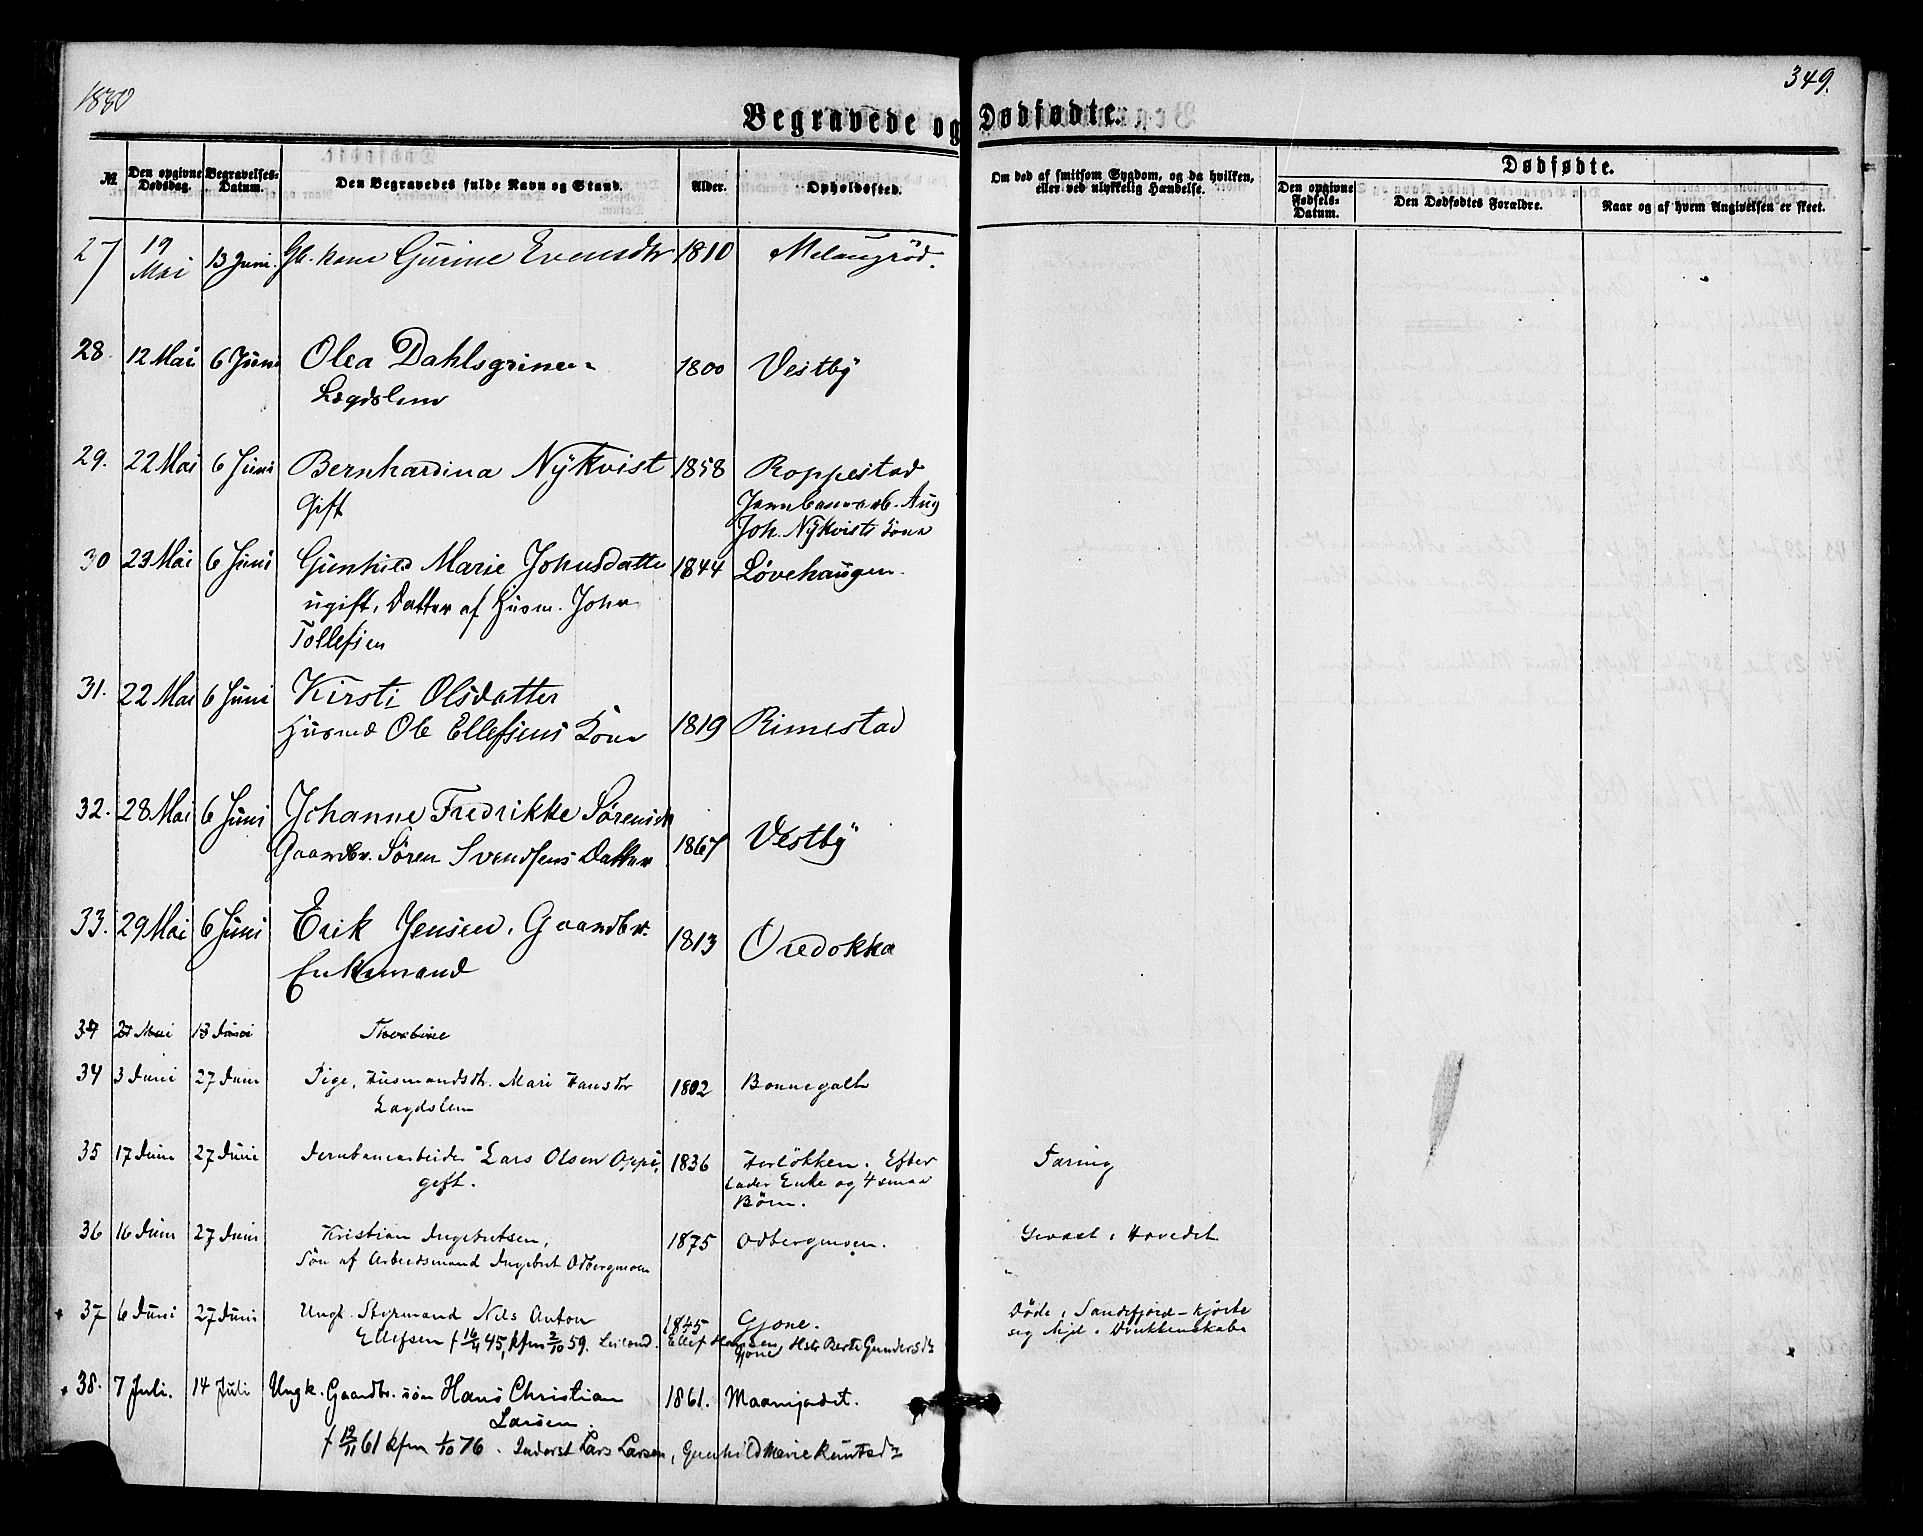 1880
349.
Begravede og Dødfødte.
№
Den opgivne Dødsdag.
Begravelses-Datum.
Den Begravedes fulde Navn og Stand.
Alder.
Opholdssted.
Om død af smitsom Sygdom, og da hvilken, eller ved ulykkelig Hændelse.
Dødfødte.
Den opgivne Fødsels-Datum.
Den Dødfødtes Forældre.
Naar og af hvem Angivelsen er skeet.
27 19 Mai 13 Juni. Gb. Kone Gurine Evensdtr 1810
28. 12 Mai 6 Juni Olea Dahlsgrinen 1800 Vestby
Lægdslem
29. 22 Mai 6 Juni Bernhardina Nÿkvist 1858 Roppestad
Gift Jernbanearb. Aug
Joh. Nÿkvists Kone
30 23 Mai 6 Juni Gunhild Marie Johnsdatter 1844 Løvehaugen
ugift, Datter af Husm. John
Tollefsen
31. 22 Mai 6 Juni Kirsti Olsdatter
Husmd Ole Ellefsens Kone 1819 Rimestad
32. 28 Mai 6 Juni Johanne Fredrikke Sørensdt
Gaardbr. Søren Svendsens Datter 1867 Vestby
33. 29 Mai 6 Juni Erik Jensen, Gaardbr. 1813 Oredokka
Enkemand
34 3 Juni 27 Juni Pige, Husmandsdtr. Mari Hansdtr 1802 Bonnegolt
Lægdslem
35 17 Juni 27 Juni Jernbanearbeider Lars Olsen Oppi, 1836 Herløkken. Efter Tæring
gift. lader Enke og 4 smaa
Børn.
36 16 Juni 27 Juni Kristian Ingebretsen, 1875 Odbergmoen. Sevdst i Hovedet
Søn af Arbeidsmand Ingebret Odbergmoen
37 6 Juni 27 Juni Ungk. Styrmand Nils Anton 1845 Gjone. Døde i Sandefjord – kjørte
Ellefsen f 16/4 45, kfm 2/10 59. Ellef Hansen Gjone, Hstr Berte Gundersdtr seg ihjel i Drukkenskab
38. 7 Juli. 14 Juli Ungk. Gaardbr. søn Hans Christian 1861. Maanejordet.
Larsen.
f 19/11 61 kfm 1/10 76. Inderst Lars Larsen, Gunhild Marie Knutsdtr